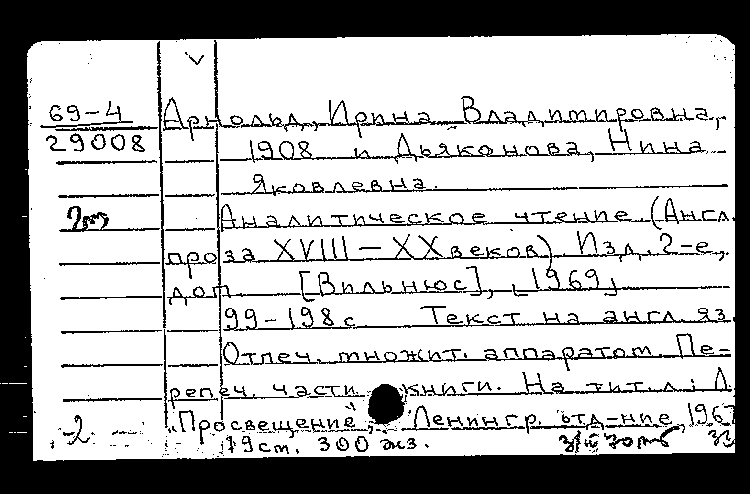 69-4
29008
Арнольд, Ирина Владимировна,
1908 и Дьяконова, Нина
Яковлевна.
Аналитическое чтение. (Англ.
проза XVIII — XX веков). Изд. 2-е,
доп. [Вильнюс], [1969]
99-198 с. Текст на англ. яз.
Отпеч. множит. аппаратом. Пе-
репеч. части книги. На тит. л.: Л.
"Просвещение", Ленингр. отд-ние, 196
-2
19 см. 300 экз.